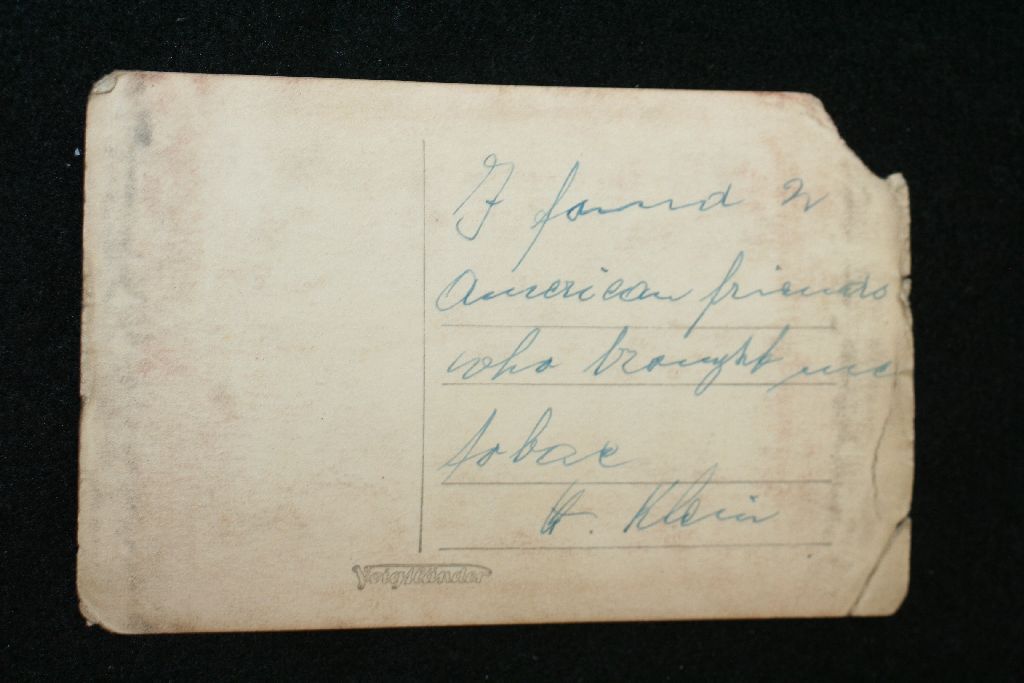 I found 2
American friends
who brought me
tobac
H. Klein
Voigtländer